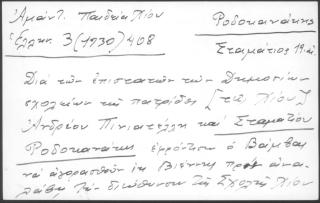 Ἀμάντ. Παιδεία Χίου
Ἑλλην. 3 (1930) 408
Ροδοκανάκης
Σταμάτιος 19 αἰ.
Διὰ τῶν ἐπιστατῶν τῶν Δημοσίων
σχολείων τῆς πατρίδος [τῆς Χίου]
Ἀνδρέου Πινιατέλλη καὶ Σταματίου
Ροδοκανάκη ἐφρόντισε ὁ Βάμβας
νὰ ἀγορασθοῦν ἐκ Βιέννης πρὶν ἀνα-
λάβῃ τὴν διεύθυνση τῆς Σχολῆς Χίου